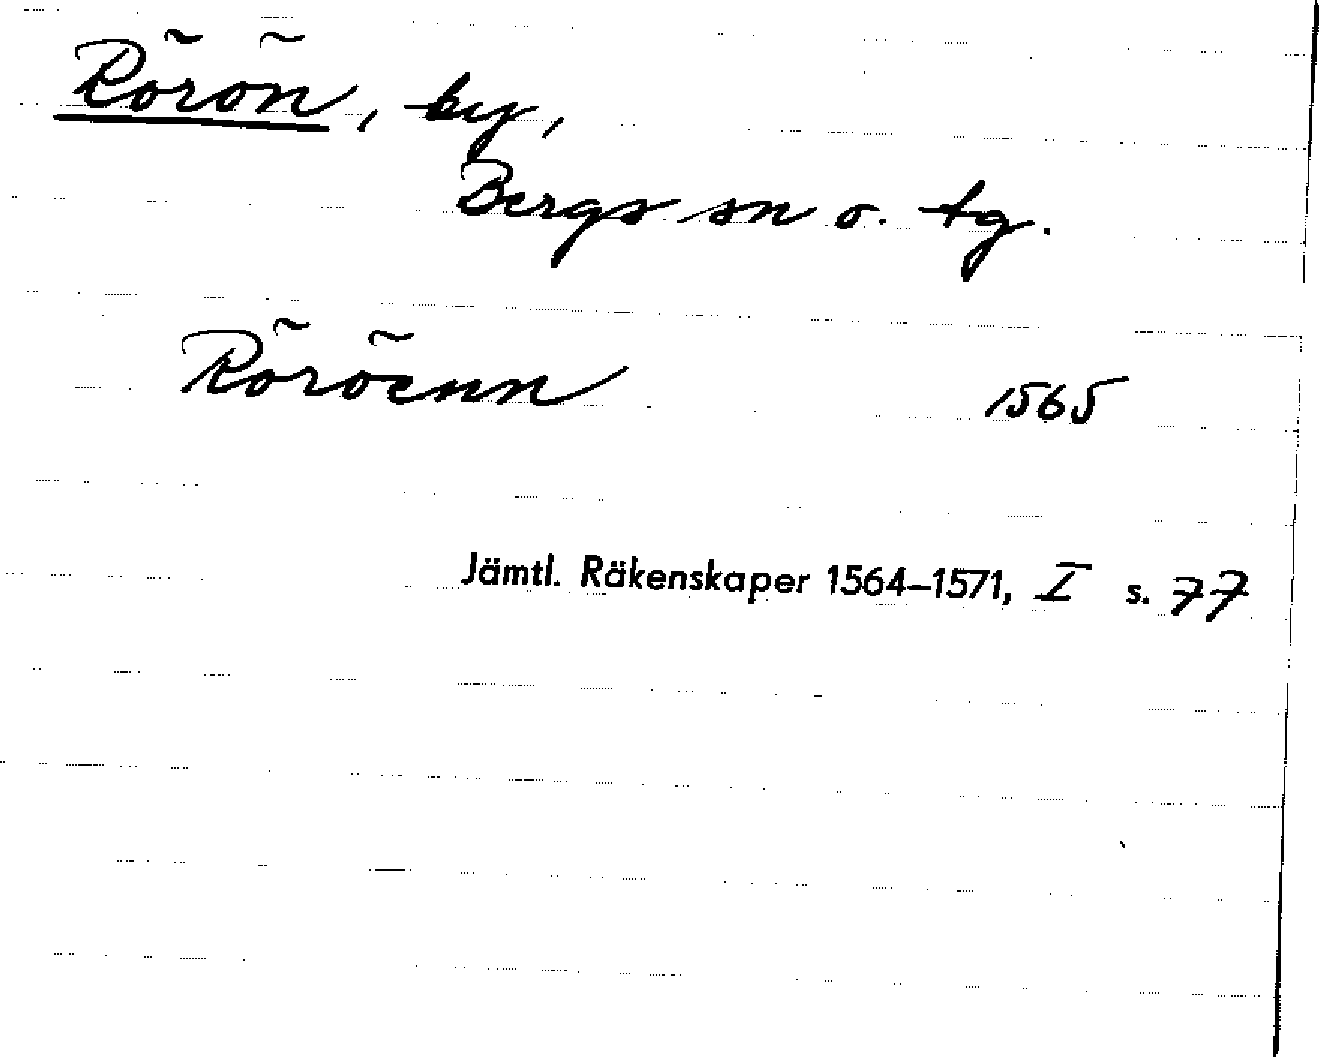 Rörön, by,
Bergs sn o. tg.
Röröenn 1565
Jämtl. Räkenskaper 1564–1571, I s. 77